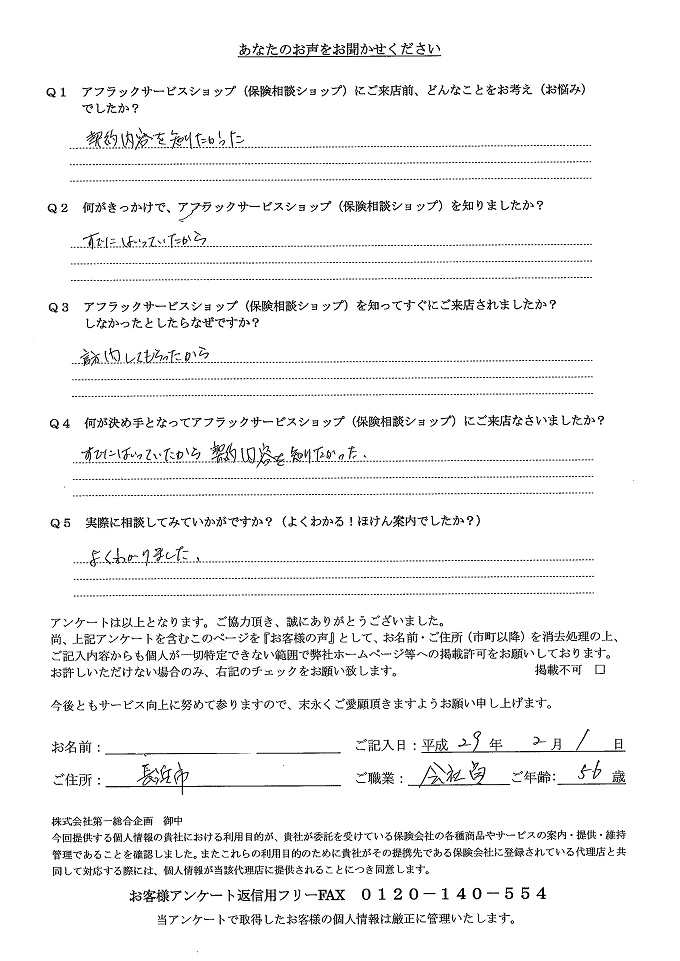 あなたのお声をお聞かせください
Q1 アフラックサービスショップ（保険相談ショップ）にご来店前、どんなことをお考え（お悩み）
でしたか？
契約内容を知りたかった
Q2 何がきっかけで、アフラックサービスショップ（保険相談ショップ）を知りましたか？
すでにはいっていたから
Q3 アフラックサービスショップ（保険相談ショップ）を知ってすぐにご来店されましたか？
しなかったとしたらなぜですか？
してもらったから
Q4 何が決め手となってアフラックサービスショップ（保険相談ショップ）にご来店なさいましたか？
すでにはいっていたから 契約内容を知りたかった、
Q5 実際に相談してみていかがですか？（よくわかる！ほけん案内でしたか？）
よくわかりました、
アンケートは以上となります。ご協力頂き、誠にありがとうございました。
尚、上記アンケートを含むこのページを『お客様の声』として、お名前・ご住所（市町以降）を消去処理の上、
ご記入内容からも個人が一切特定できない範囲で弊社ホームページ等への掲載許可をお願いしております。
お許しいただけない場合のみ、右記のチェックをお願い致します。 掲載不可 □
今後ともサービス向上に努めて参りますので、末永くご愛顧頂きますようお願い申し上げます。
お名前： ご記入日：平成 29 年 2 月 1 日
ご住所： 長浜市 ご職業： 会社員 ご年齢： 56 歳
株式会社第一総合企画 御中
今回提供する個人情報の貴社における利用目的が、貴社が委託を受けている保険会社の各種商品やサービスの案内・提供・維持
管理であることを確認しました。またこれらの利用目的のために貴社がその提携先である保険会社に登録されている代理店と共
同して対応する際には、個人情報が当該代理店に提供されることにつき同意します。
お客様アンケート返信用フリーFAX 0120－140－554
当アンケートで取得したお客様の個人情報は厳正に管理いたします。